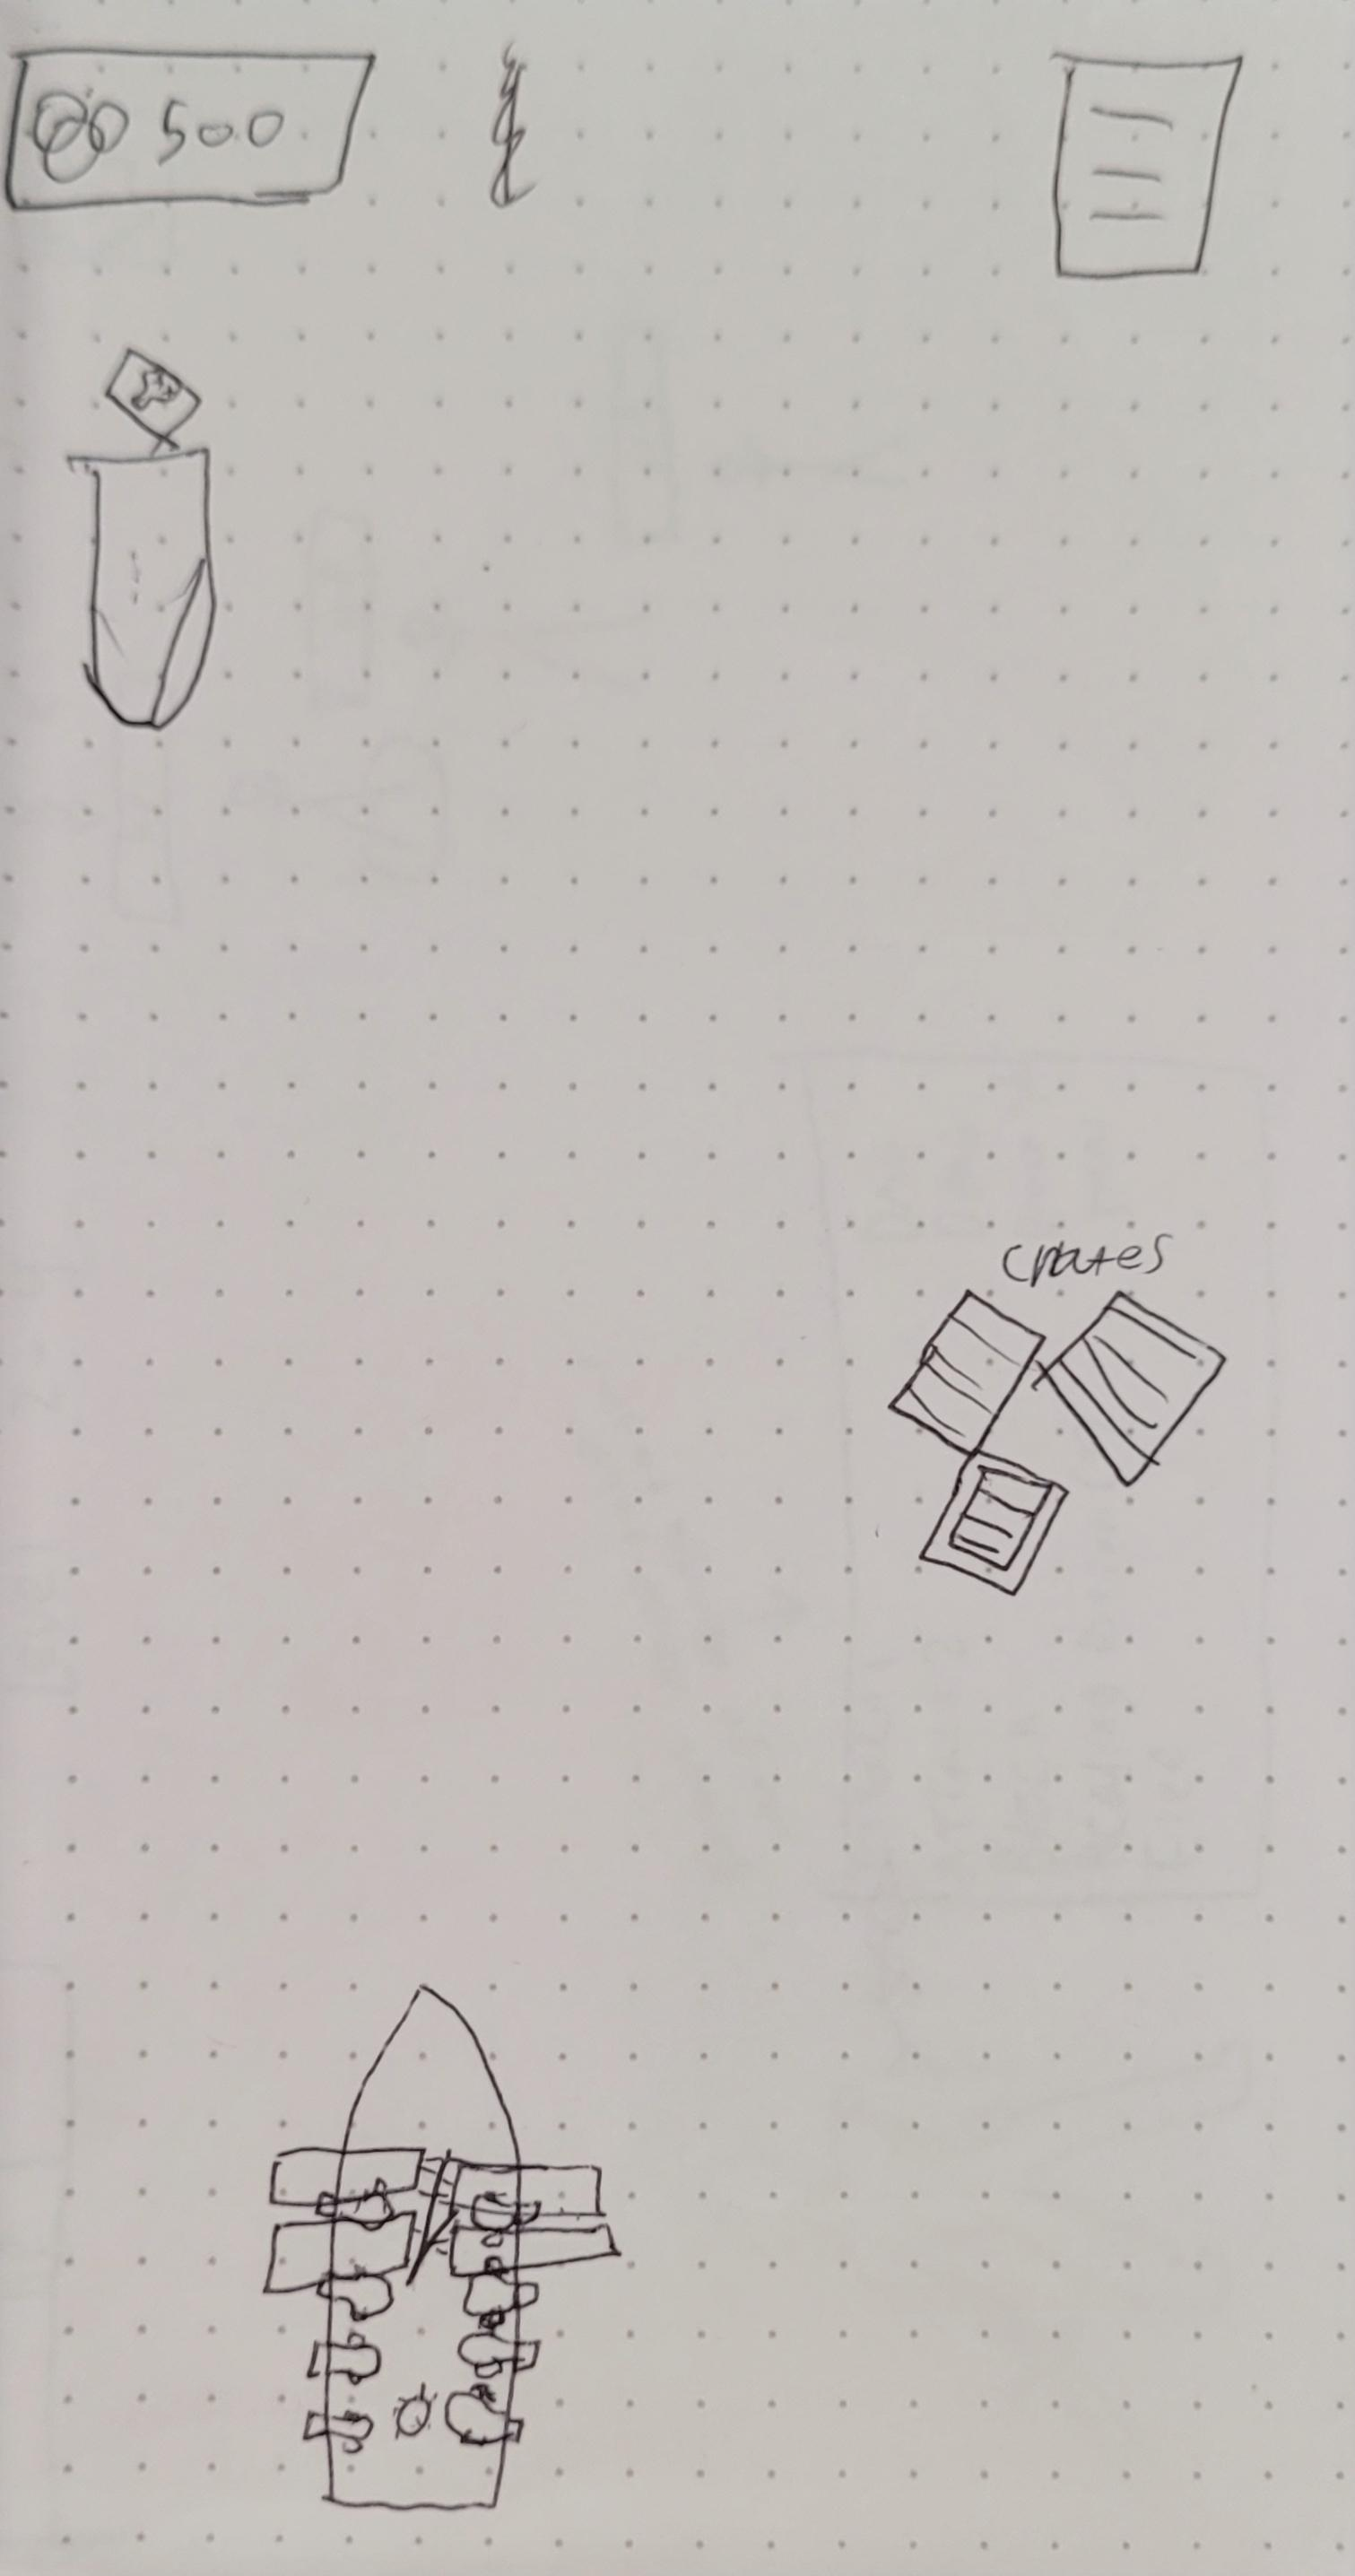 500
crates